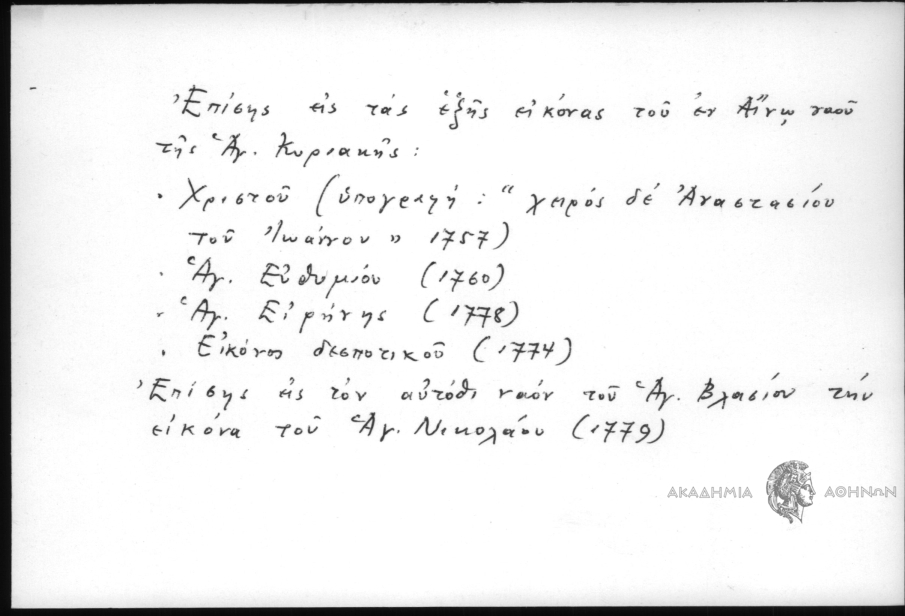 Ἐπίσης εἰς τάς ἑξῆς εἰκόνας τοῦ ἐν Αἴνῳ ναοῦ
τῆς Ἁγ. Κυριακῆς :
· Χριστοῦ (ὑπογραφή : " χειρός δέ Ἀναστασίου
τοῦ Ἰωάννου " 1757)
· Ἁγ. Εὐθυμίου (1760)
· Ἁγ. Εἰρήνης (1778)
· Εἰκόνος δεσποτικοῦ (1774)
Ἐπίσης εἰς τόν αὐτόθι ναόν τοῦ Ἁγ. Βλασίου τήν
εἰκόνα τοῦ Ἁγ. Νικολάου (1779)
ΑΚΑΔΗΜΙΑ ΑΘΗΝΩΝ